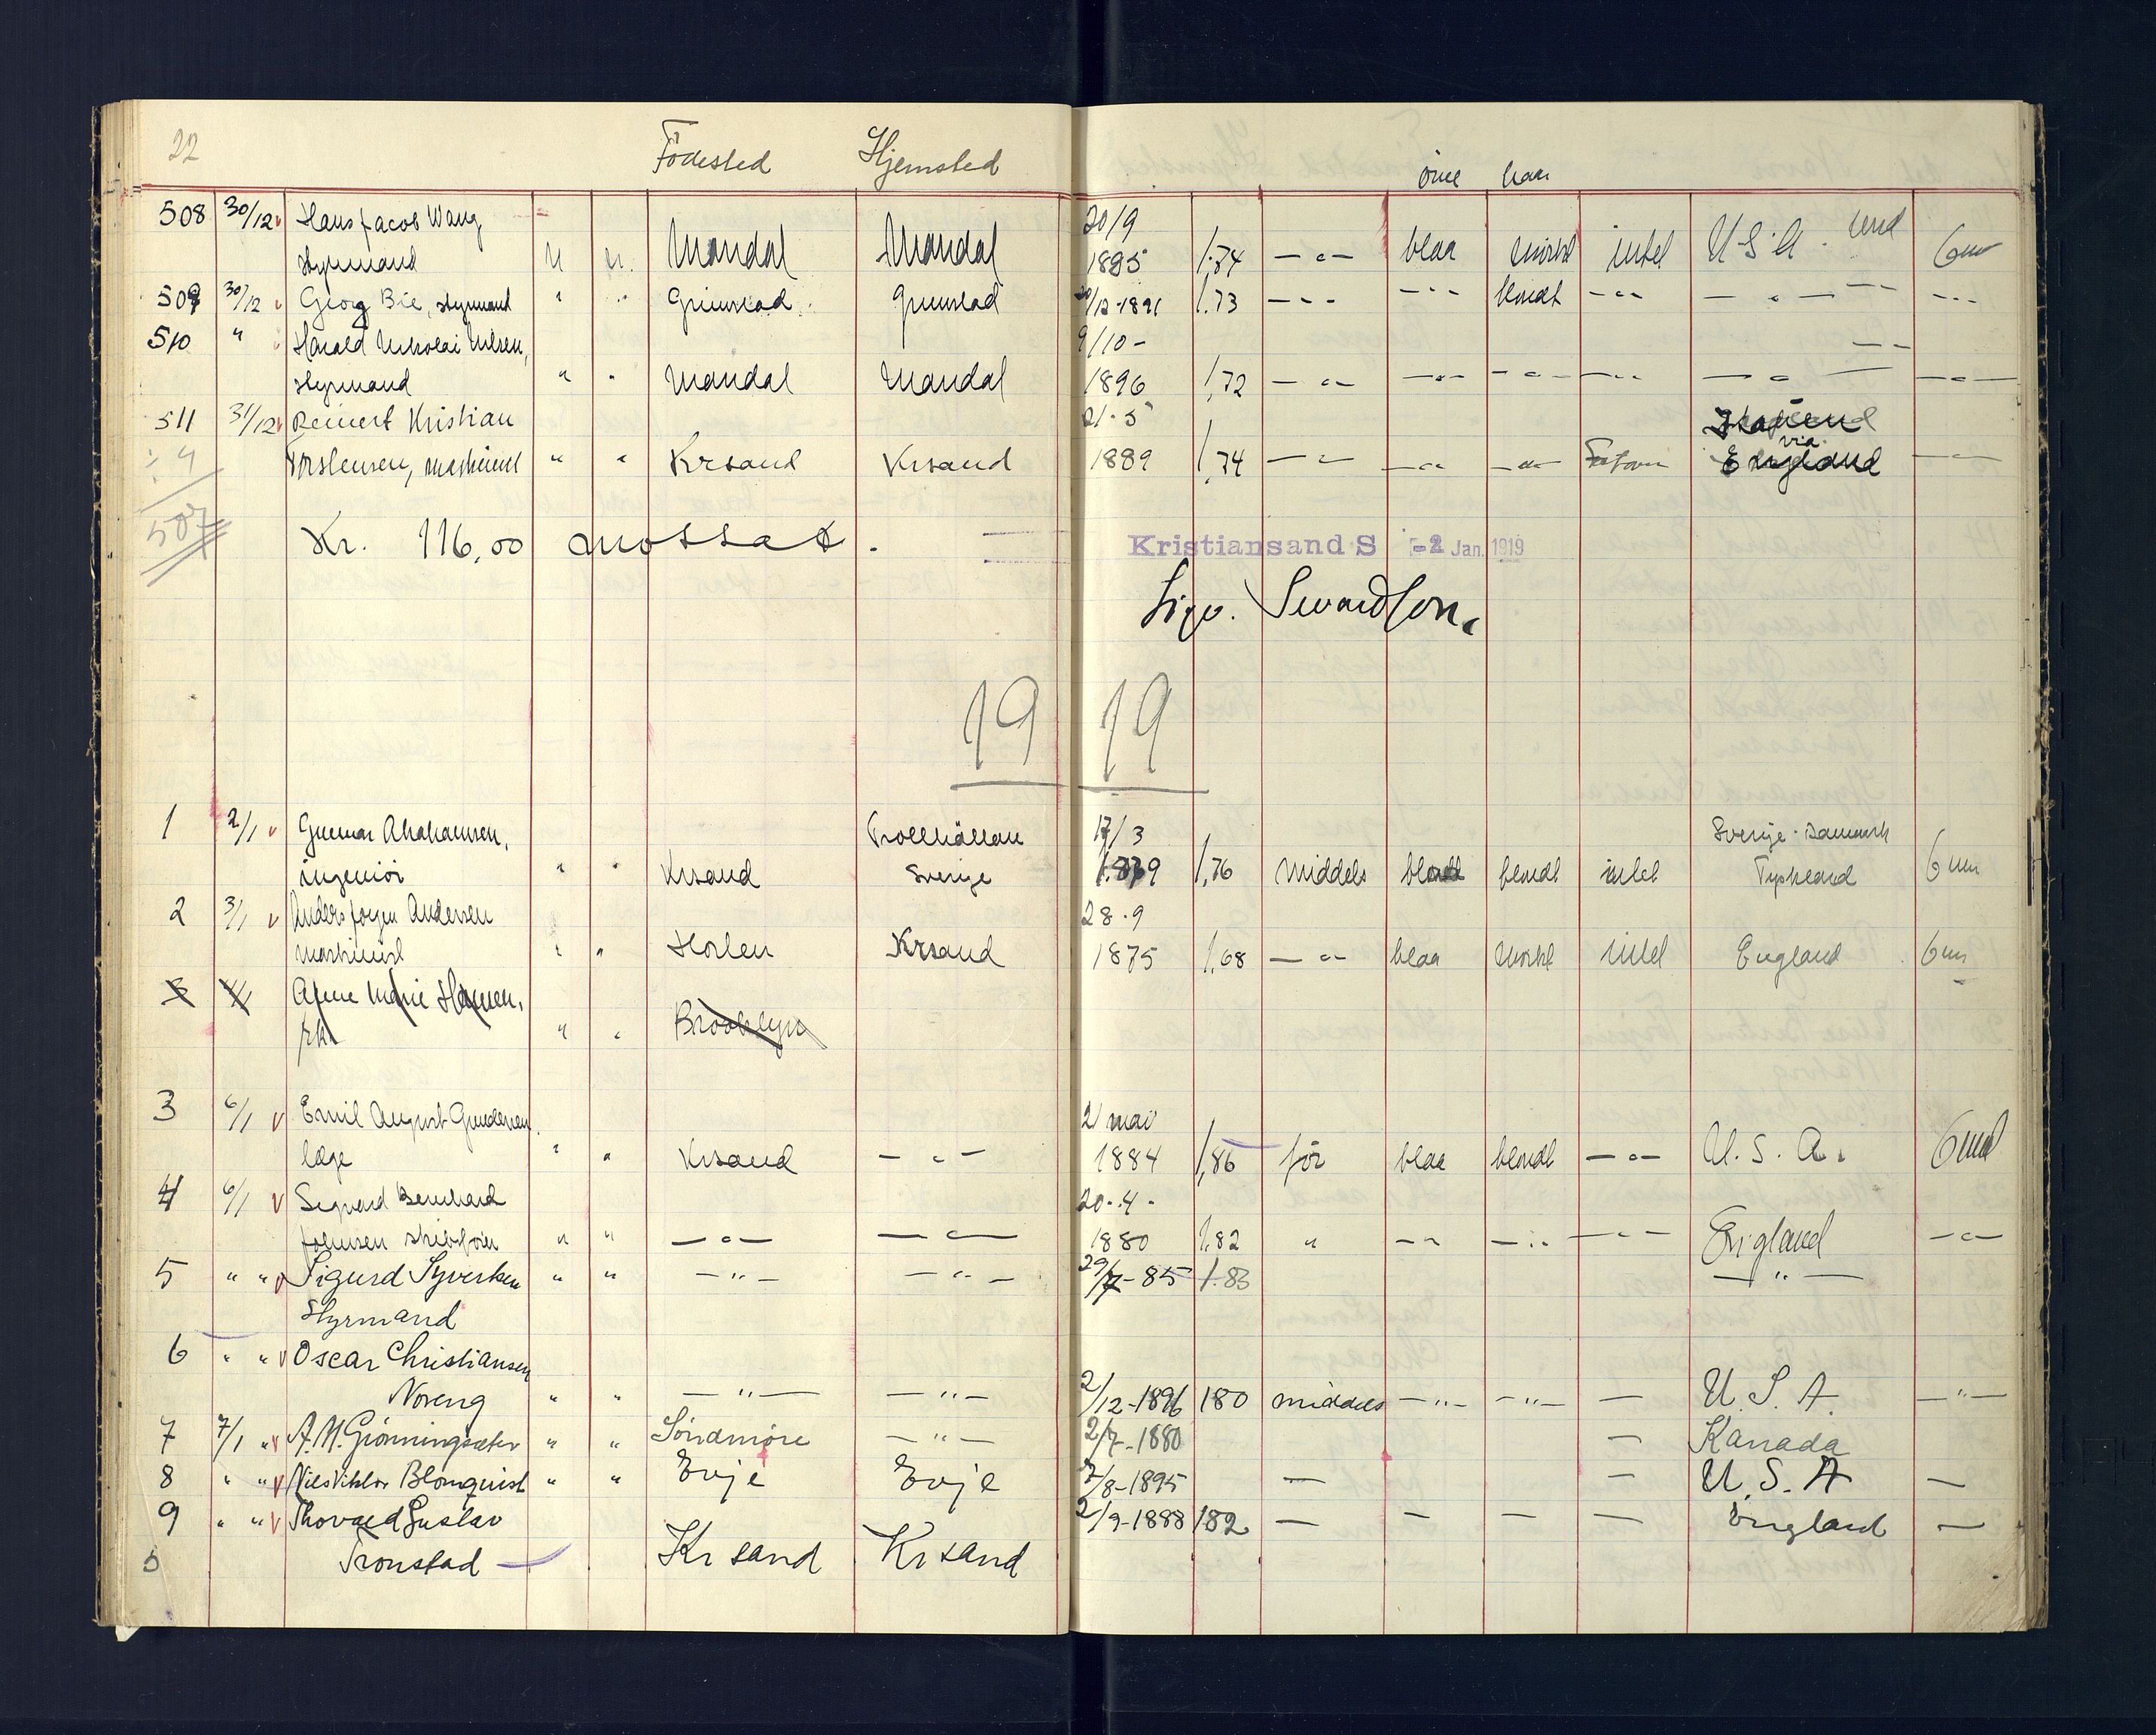 22 Födested Hjemsted öine haar
508 30/12 Hans Jacob Wang 20/9
Styrmand N n. Mandal Mandal 1895 1.74 — " — blaa mörkt intet U S A. 6 m
509 30/12 Georg Bie, styrmand " " Grimstad Grimstad /12-1891 1.73 — " — — " — blondt — " — — " — — " —
510 " Harald Nikolai Nilsen, 9/10-
Styrmand " " Mandal Mandal 1896 1,72 — " — — " — — " — — " — — " — — " —
511 31/12 Reinert Kristian 21.5
÷ 4 Torstensen, maskinist " " Krsand Krsand 1889 1,74 — " — — " — — " — via England — " —
507
Kr. 116,00 mottat.
Kristiansand S -2 Jan. 1919
Sigv. Sivardson.
1919
1 2/1 Gunnar Abrahamsen, Trollhättan 17/3 Sverige - Danmark
ingeniör " " Krsand Sverige 1.879 1,76 Middels blondt intet Tyskland 6 mn
2 3/1 Anders Jörgen Andersen 28.9
maskinist " " Holen Krsand 1875 1,68 — " — blaa mörkt intet England 6 mn
Marie Hansen,
frk " " Brooklyn
3 6/1 Emil August Gundersen 2/ mai
læge " " Krsand — " — 1884 1,86 för blaa blondt — " — U. S. A. 6 md
4 6/1 Sigvard Bernhard 20.4-
Johnsen skibsförer " " — " — — " — 1880 1.82 " — " — — " — — " — England — " —
5 " " Sigurd Syvertsen " " — " — — " — 29/7-85 1.83 — " —
Styrmand
6 " " Oscar Christiansen
Noreng " " — " — — " — 2/12-1896 180 middels — " — — " — — U. S. A. — " —
7 7/1 " A. M. Grönningsæter " " Söndmöre — " — 2/7-1880 — Kanada
8 " " Nils Viktor Blomquist " " Evje Evje 7/8-1895 — — U. S. A —
9 " " Thorvald Gustav 2/9-1888 182 — — — — England —
Tronstad — Krsand Krsand